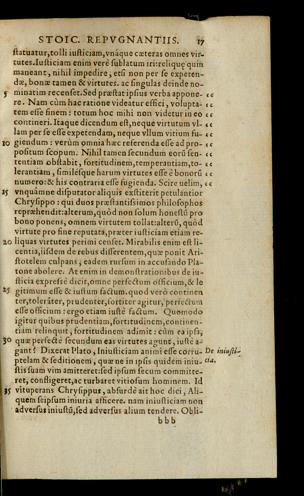 STOIC. REPVGNANTIIS. 17
statuatur, tolli iusticiam, vnáque cæteras omnes vir-
tutes. Iusticiam enim verè sublatum iri: reliquę quin
maneant, nihil impedire, etsi non per se expeten-
dæ, bonæ tamen & virtutes. ac singulas deinde no-
5 minatim recenset. Sed præstat ipsius verba appone-
re. Nam cùm hac ratione videatur effici, volupta-
tem esse finem: totum hoc mihi non videtur in eo
contineri. Itaque dicendum est, neque virtutum vl-
lam per se esse expetendam, neque vllum vitium fu-
10 giendum: verùm omnia hæc referenda esse ad pro-
positum scopum. Nihil tamen secundum eorū sen-
tentiam obstabit, fortitudinem, temperantiam, to-
lerantiam, similésque harum virtutes esse è bonorū
numero: & his contraria esse fugienda. Scire velim,
15 vnquámne disputator aliquis exstiterit petulantior
Chrysippo: qui duos præstantissimos philosophos
repræhendit: alterum, quòd non solum honestū pro
bono ponens, omnem virtutem tollat: alterū, quòd
virtute pro fine reputata, præter iusticiam etiam re-
20 liquas virtutes perimi censet. Mirabilis enim est li-
centia, iisdem de rebus disserentem, quæ ponit Ari-
stotelem culpans, eadem rursum in accusando Pla-
tone abolere. At enim in demonstrationibus de iu-
sticia expressè dicit, omne perfectum officium, & le
25 gitimum esse & iustum factum. quod verò continen
ter, toleráter, prudenter, fortiter agitur, perfectum
esse officium: ergo etiam iustè factum. Quomodo
igitur quibus prudentiam, fortitudinem, continen-
tiam relinquit, fortitudinem adimit: cùm ea ipsa,
30 quæ perfectè secundum eas virtutes agunt, iustè a-
gant? Dixerat Plato, Iniusticiam animi esse corru-
De iniusti-
ptelam & seditionem, quæ ne in ipsis quidem iniu-
cia.
stis suam vim amitteret: sed ipsum secum committe-
ret, confligeret, ac turbaret vitiosum hominem. Id
35 vituperans Chrysippus, absurdè ait hoc dici, Ali-
quem seipsum iniuria afficere. nam iniusticiam non
adversus iniustū, sed adversus alium tendere. Obli-
bbb